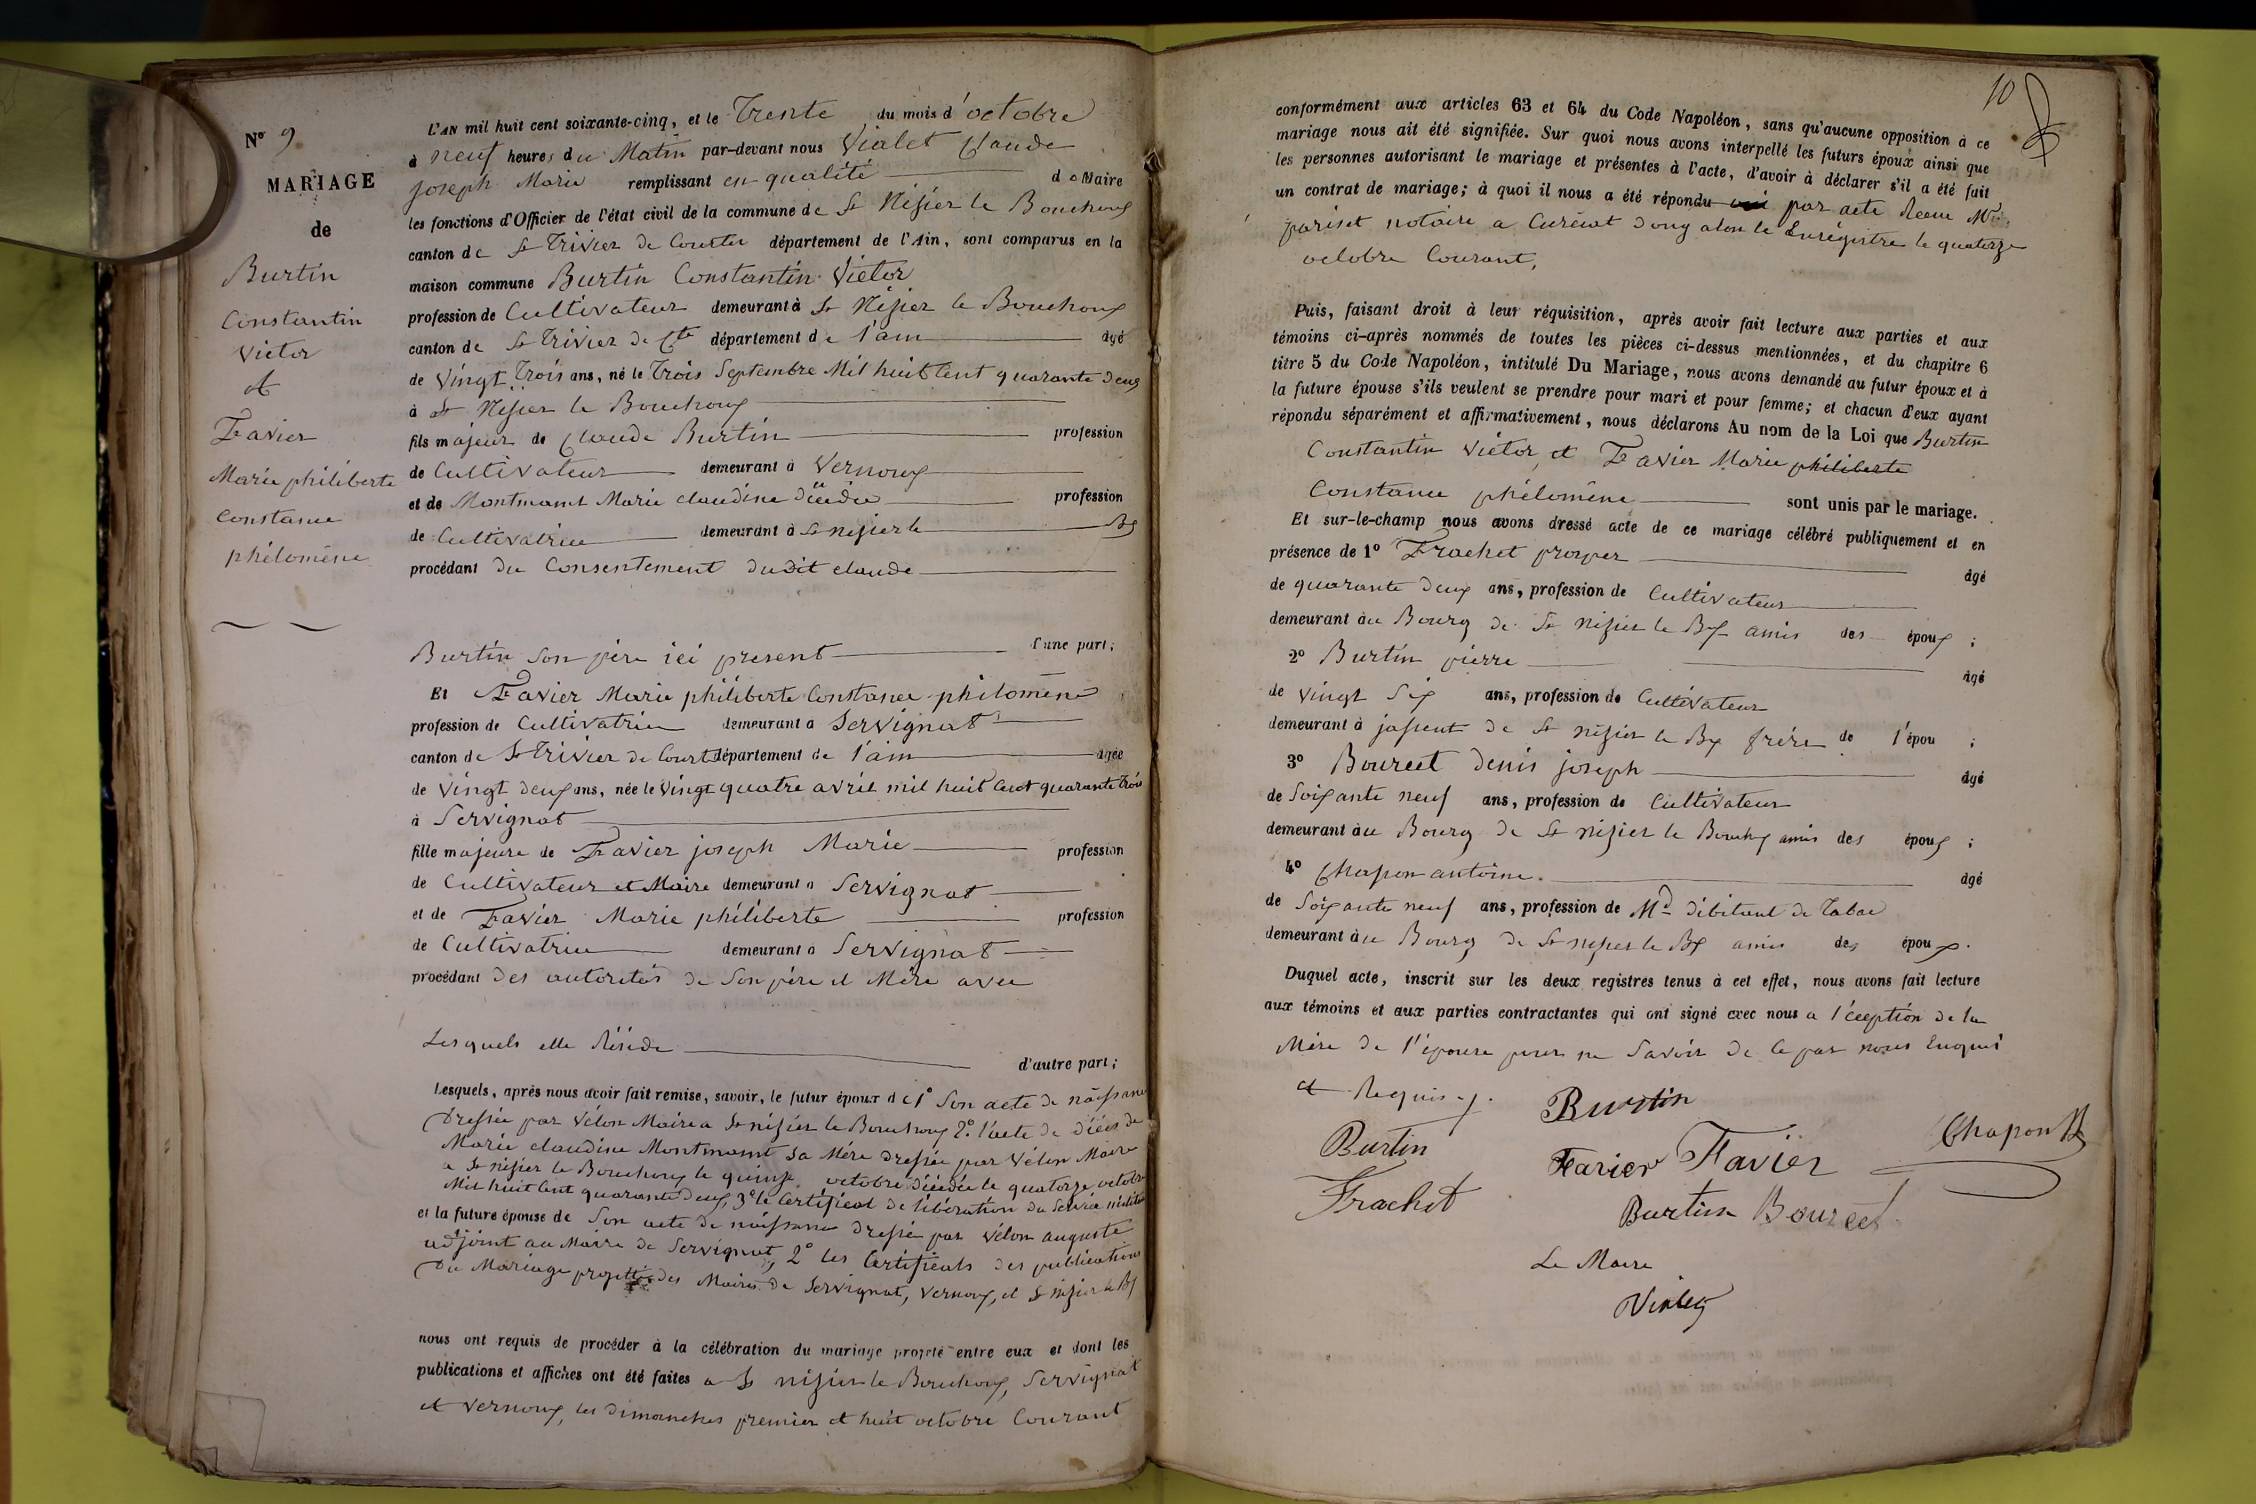 N° 9
MARIAGE
de
Burtin
Constantin
Victor
et
Favier
Marie philiberte
Constance
philomène
L'AN mil huit cent soixante-cinq, et le Trente du mois d'octobre
à neuf heures du Matin par-devant nous Vialet Claude
joseph Marie remplissant en qualité de Maire
les fonctions d'Officier de l'état civil de la commune de St Nisier le Bouchoux
canton de St Trivier de Courtes département de l'Ain, sont comparus en la
maison commune Burtin Constantin Victor
profession de Cultivateur demeurant à St Nisier le Bouchoux
canton de St Trivier de Ctes département de l'ain âgé
de Vingt Trois ans, né le Trois Septembre Mil huit Cent quarante deux
à St Nisier le Bouchoux
fils majeur de Claude Burtin profession
de Cultivateur demeurant à Vernoux
et de Montmant Marie claudine décédée profession
de Cultivatrice demeurant à St nisier le Bx
procédant du Consentement dudit claude
Burtin Son père ici présent d'une part;
Et Favier Marie philiberte Constance philomène
profession de Cultivatrice demeurant à Servignat
canton de St Trivier de Courtes département de l'ain âgée
de Vingt deux ans, née le Vingt quatre avril mil huit Cent quarante Trois
à Servignat
fille majeure de Favier joseph Marie profession
de Cultivateur et Maire demeurant à Servignat
et de Favier Marie philiberte profession
de Cultivatrice demeurant à Servignat
procédant des autorités de Son père et Mère avec
Lesquels elle Réside d'autre part;
Lesquels, après nous avoir fait remise, savoir, le futur époux de 1° Son acte de naissance
Dressée par Vélon Maire a St nisier le Bouchoux 2° l'acte de décès de
Marie claudine Montmant Sa Mère dressée par Vélon Maire
a St nisier le Bouchoux le quinze octobre décédée le quatorze octobre
Mil huit Cent quarante deux, 3° le Certificat de libération du Service militaire
et la future épouse de Son acte de naissance dressée par Vélon auguste
adjoint au Maire de Servignat, 2° les Certificats des publications
Du Mariage projetté des Maires de Servignat, Vernoux, et St nisier le Bx
nous ont requis de procéder à la célébration du mariage projeté entre eux et dont les
publications et affiches ont été faites a St nisier le Bouchoux, Servignat
et Vernoux, les dimanches premier et huit octobre Courant
10
conformément aux articles 63 et 64 du Code Napoléon, sans qu'aucune opposition à ce
mariage nous ait été signifiée. Sur quoi nous avons interpellé les futurs époux ainsi que
les personnes autorisant le mariage et présentes à l'acte, d'avoir à déclarer s'il a été fait
un contrat de mariage; à quoi il nous a été répondu oui par acte Recu Me
pariset notaire a Curciat dongalon le Enregistre le quatorze
octobre Courant,
Puis, faisant droit à leur réquisition, après avoir fait lecture aux parties et aux
témoins ci-après nommés de toutes les pièces ci-dessus mentionnées, et du chapitre 6
titre 5 du Code Napoléon, intitulé Du Mariage, nous avons demandé au futur époux et à
la future épouse s'ils veulent se prendre pour mari et pour femme; et chacun d'eux ayant
répondu séparément et affirmativement, nous déclarons Au nom de la Loi que Burtin
Constantin Victor, et Favier Marie philiberte
Constance phélomène sont unis par le mariage.
Et sur-le-champ nous avons dressé acte de ce mariage célébré publiquement et en
présence de 1° Frachet prosper âgé
de quarante deux ans, profession de Cultivateur
demeurant au Bourg de St nisier le Bx amis des époux;
2° Burtin pierre âgé
de Vingt Six ans, profession de Cultivateur
demeurant à jassent de St nisier le Bx frère de l'épou;
3° Bourcet denis joseph âgé
de Soixante neuf ans, profession de Cultivateur
demeurant au Bourg de St nisier le Bouchx amis des époux;
4° Chapon antoine âgé
de Soixante neuf ans, profession de Md débitant de Tabac
demeurant au Bourg de St nisier le Bx amis des époux.
Duquel acte, inscrit sur les deux registres tenus à cet effet, nous avons fait lecture
aux témoins et aux parties contractantes qui ont signé avec nous a l'éception de la
Mère de l'épouse pour ne Savoir de ce par nous Enquis
et Requis.
Burtin
Burtin
Chapon
Favier Favier
Frachet
Burtin Bourcet
Le Maire
Vialet